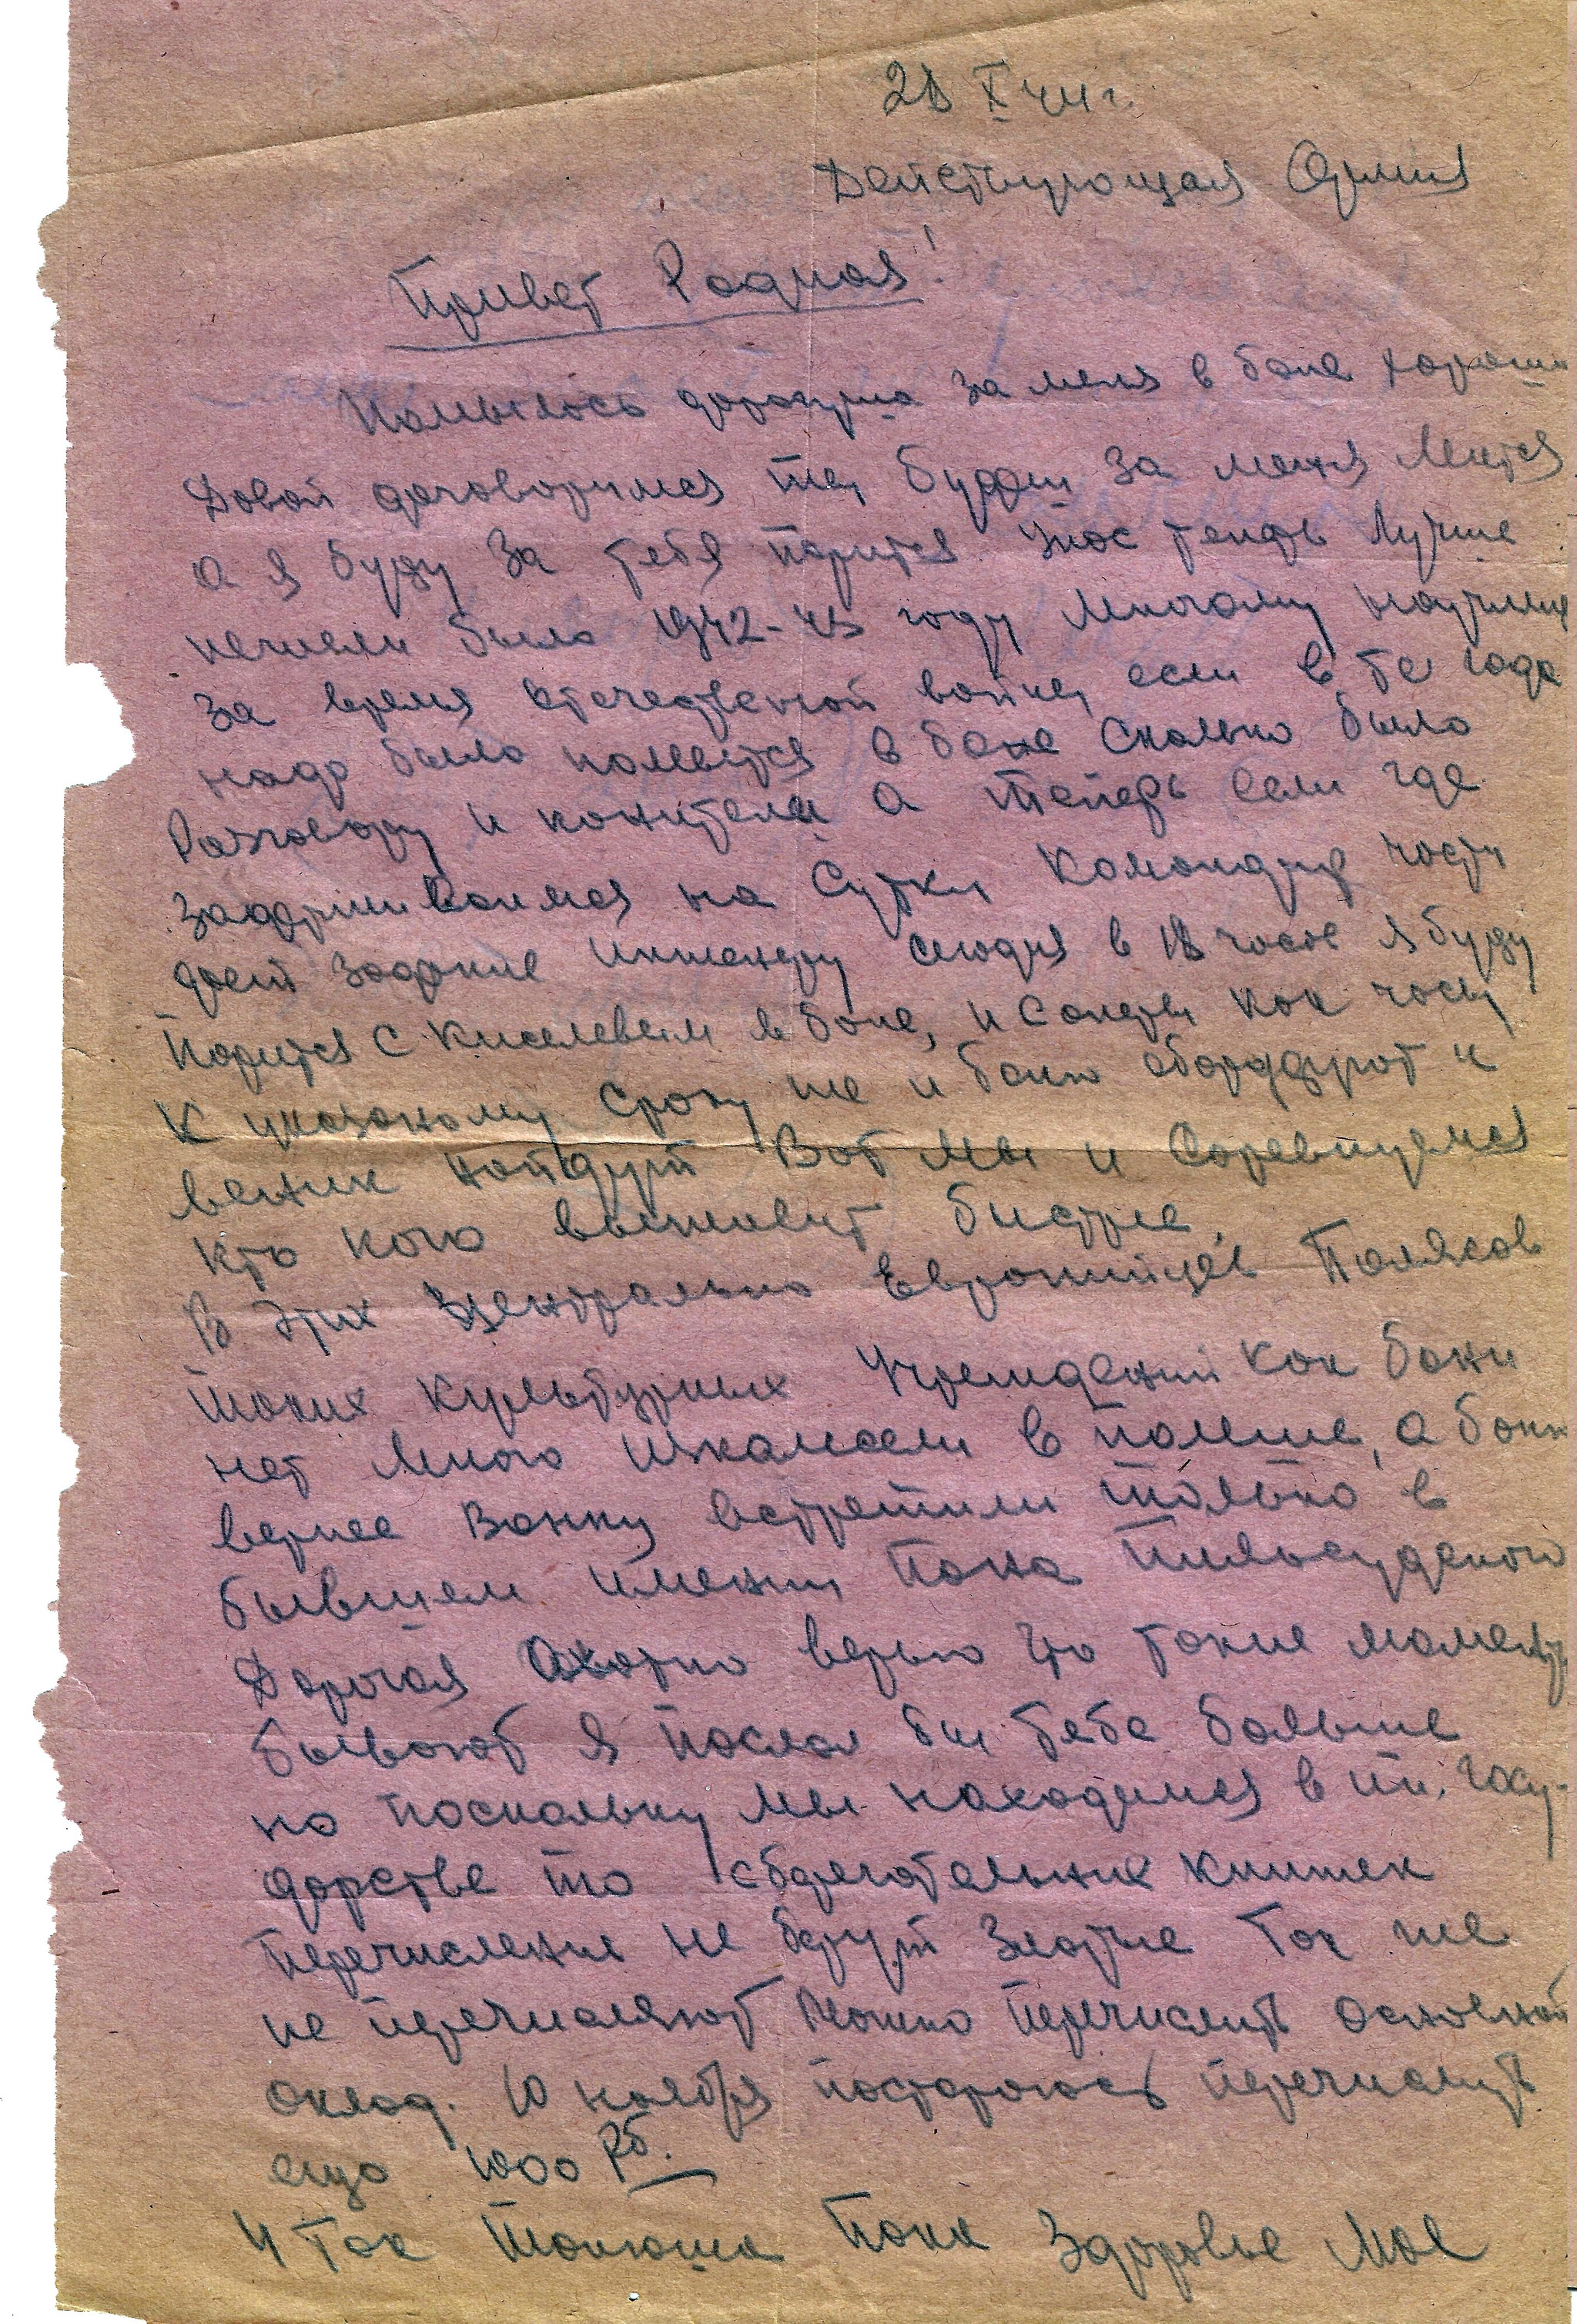 28 X 44 г.
Действующая Армия
Привет Родная!
Помылось дорогуша за меня в бане хорошо
Довай договоримся ты будеш за меня мытся
а я буду за тебя парится. У нас теперь лучше
нежели было 1942-43 году многому научились
за время отечественой войны если в те года
надо было помытся в бане сколько было
Разговору и канители а теперь если где
задерживаимся на Сутки Командир части
дает задание инженеру сегодня в 18 часов я буду
Парится с Киселевым в бане, и саперы как часы
К указаному сроку уже и баню оборудуют и
веник найдут Вот мы и Соревнуемся
кто кого выживет быстрее.
В этих Центрально Европийцев Поляков
таких культурных Учреждений как бани
нет много искалесели в польше, а бани
вернее Ванну встретили только в
бывшем имении Пана Пильсудского
Дорогая Охотно верю что такие моменты
бывают я послал бы тебе больше
но поскольку мы находимся в ин. Госу-
дарстве то сберегательных книжек
перечисление не берут Злотые так же
не перечисляют Можно перечислить основной
оклад. 10 ноября постараюсь перечислить
ещо 1000 Рб.
И так Тонюша Пока Здоровье Мое